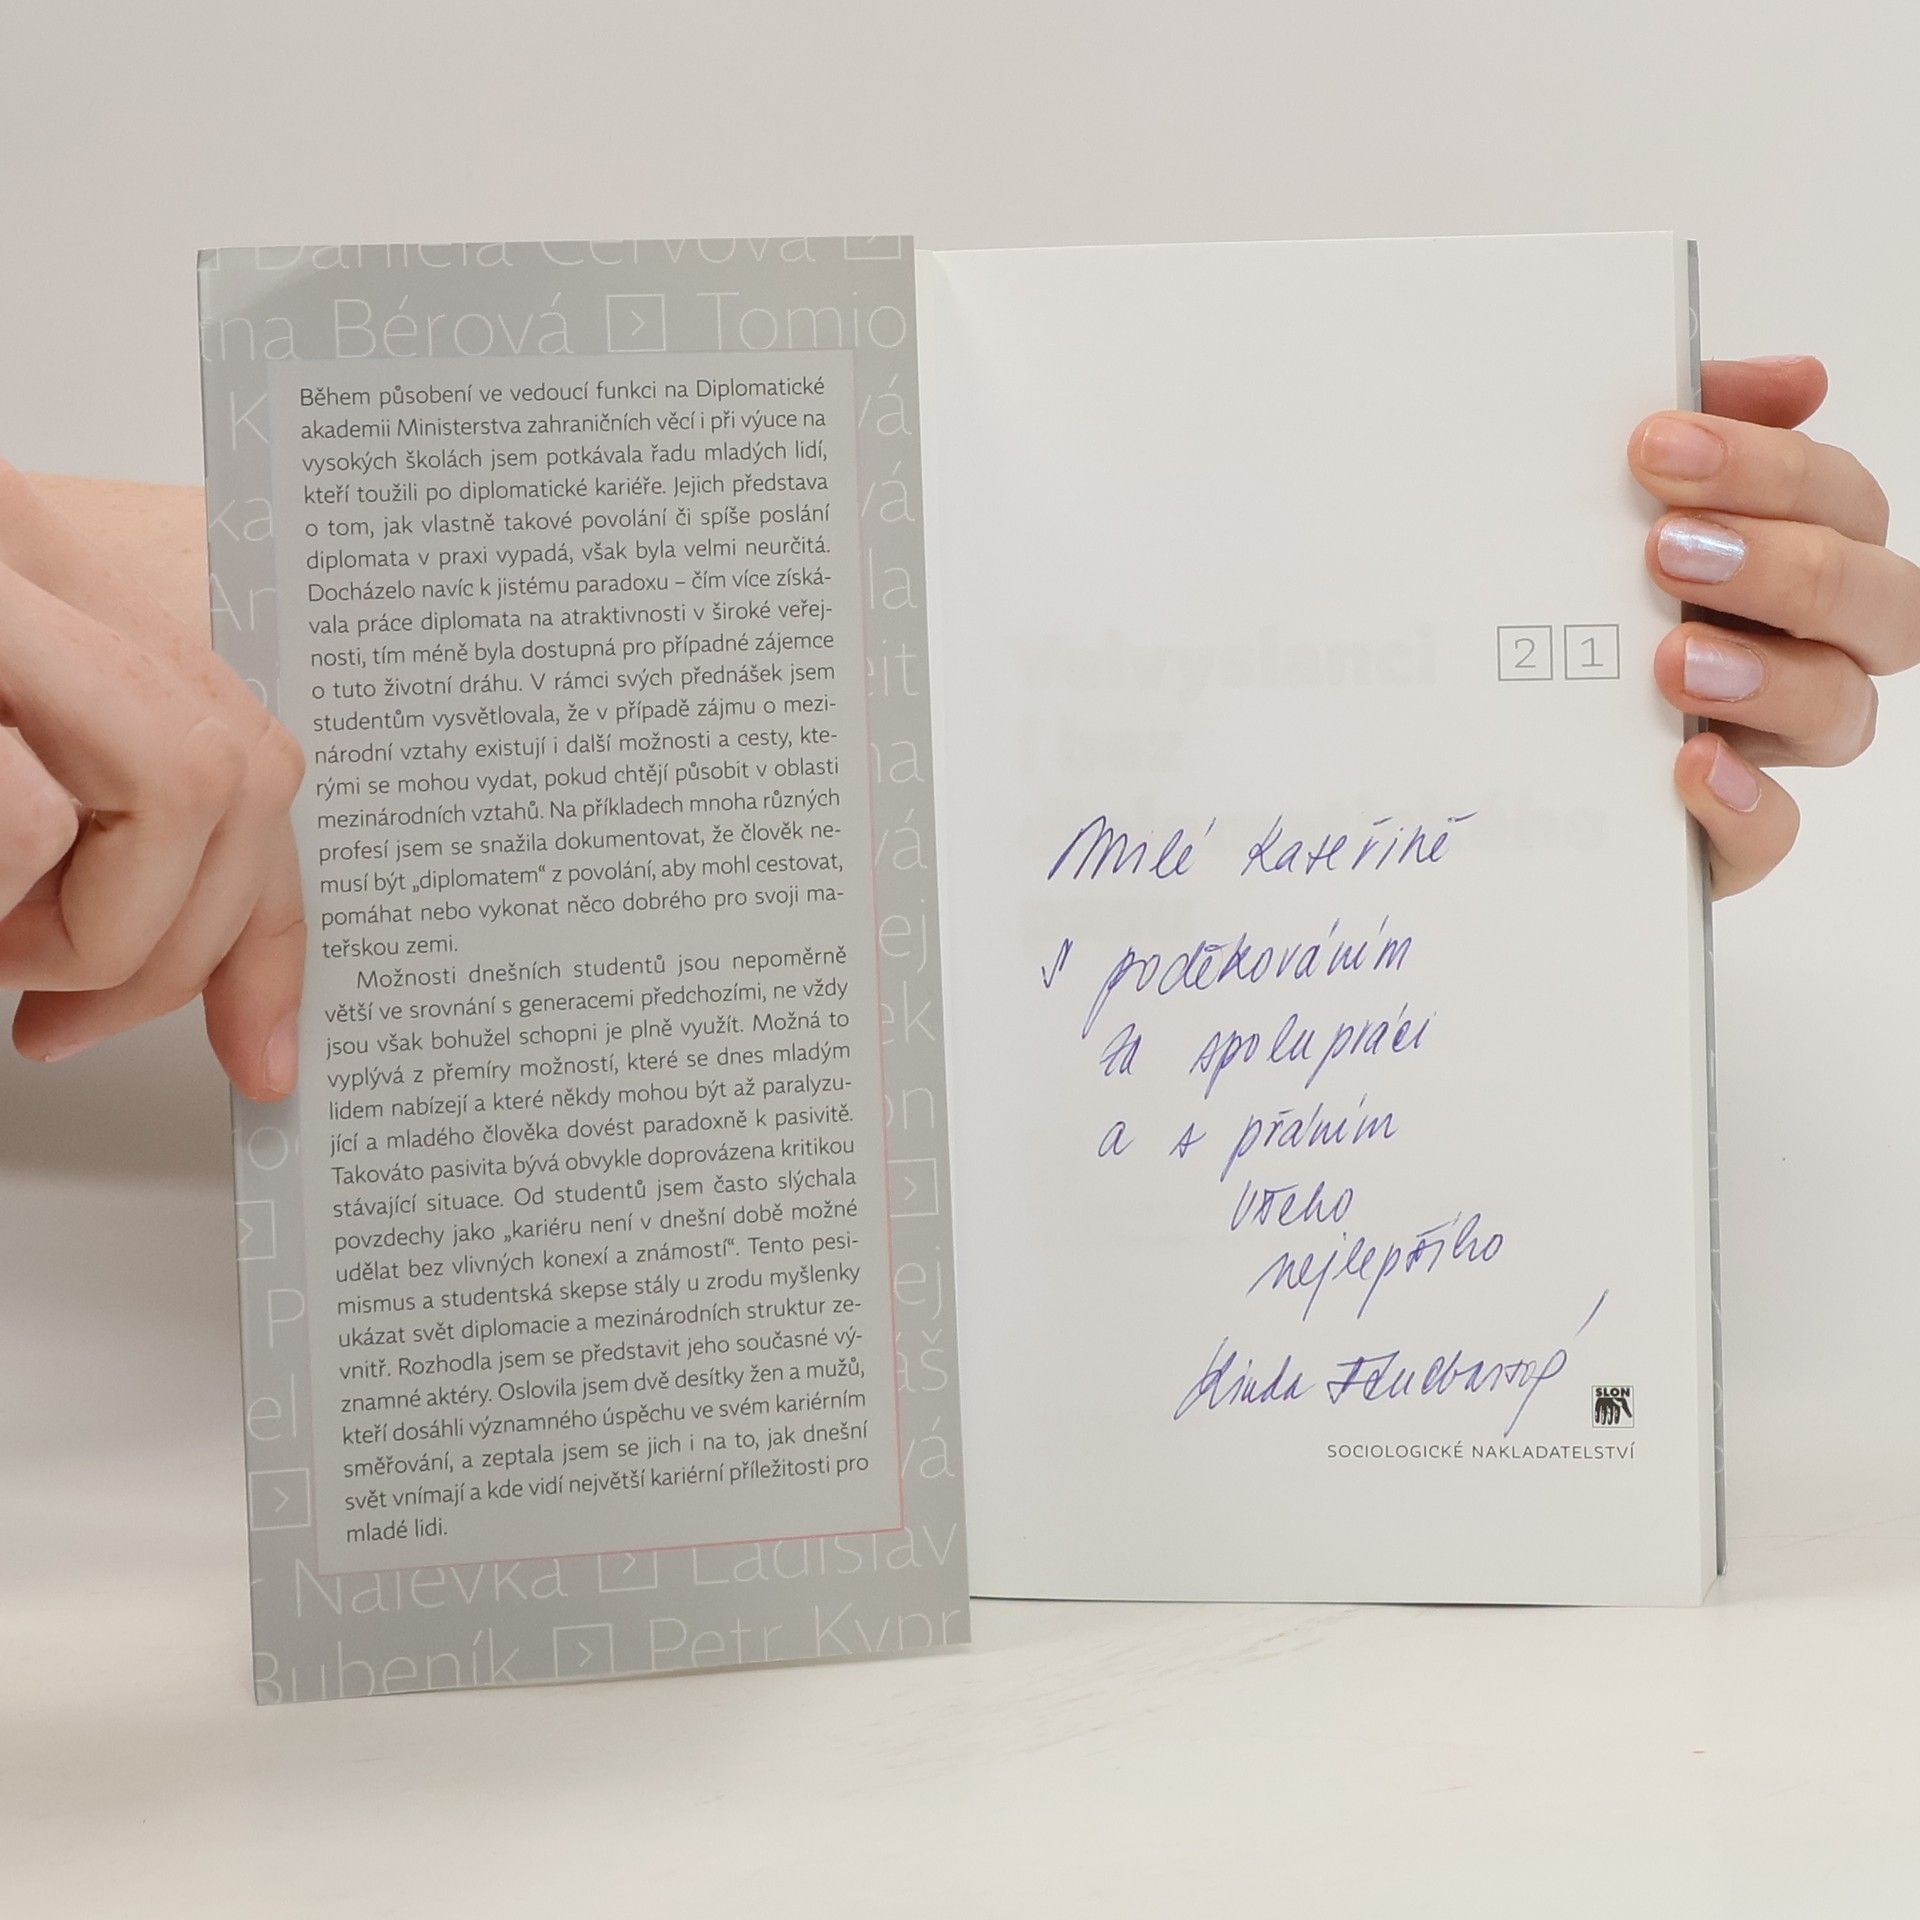 Daniela Červová
tna Bérová > Tomio
Během působení ve vedoucí funkci na Diplomatické
akademii Ministerstva zahraničních věcí i při výuce na
vysokých školách jsem potkávala řadu mladých lidí,
kteří toužili po diplomatické kariéře. Jejich představa
o tom, jak vlastně takové povolání či spíše poslání
diplomata v praxi vypadá, však byla velmi neurčitá.
Docházelo navíc k jistému paradoxu – čím více získá-
vala práce diplomata na atraktivnosti v široké veřej-
nosti, tím méně byla dostupná pro případné zájemce
o tuto životní dráhu. V rámci svých přednášek jsem
studentům vysvětlovala, že v případě zájmu o mezi-
národní vztahy existují i další možnosti a cesty, kte-
rými se mohou vydat, pokud chtějí působit v oblasti
mezinárodních vztahů. Na příkladech mnoha různých
profesí jsem se snažila dokumentovat, že člověk ne-
musí být „diplomatem“ z povolání, aby mohl cestovat,
pomáhat nebo vykonat něco dobrého pro svoji ma-
teřskou zemi.
Možnosti dnešních studentů jsou nepoměrně
větší ve srovnání s generacemi předchozími, ne vždy
jsou však bohužel schopni je plně využít. Možná to
vyplývá z přemíry možností, které se dnes mladým
lidem nabízejí a které někdy mohou být až paralyzu-
jící a mladého člověka dovést paradoxně k pasivitě.
Takováto pasivita bývá obvykle doprovázena kritikou
stávající situace. Od studentů jsem často slýchala
povzdechy jako „kariéru není v dnešní době možné
udělat bez vlivných konexí a známostí“. Tento pesi-
mismus a studentská skepse stály u zrodu myšlenky
ukázat svět diplomacie a mezinárodních struktur ze-
vnitř. Rozhodla jsem se představit jeho současné vý-
znamné aktéry. Oslovila jsem dvě desítky žen a mužů,
kteří dosáhli významného úspěchu ve svém kariérním
směřování, a zeptala jsem se jich i na to, jak dnešní
svět vnímají a kde vidí největší kariérní příležitosti pro
mladé lidi.
Nálevka > Ladislav
Bubeník > Petr Kypr
21
Milé Kateřině
s poděkováním
za spolupráci
a s přáním
všeho
nejlepšího
SLON
SOCIOLOGICKÉ NAKLADATELSTVÍ